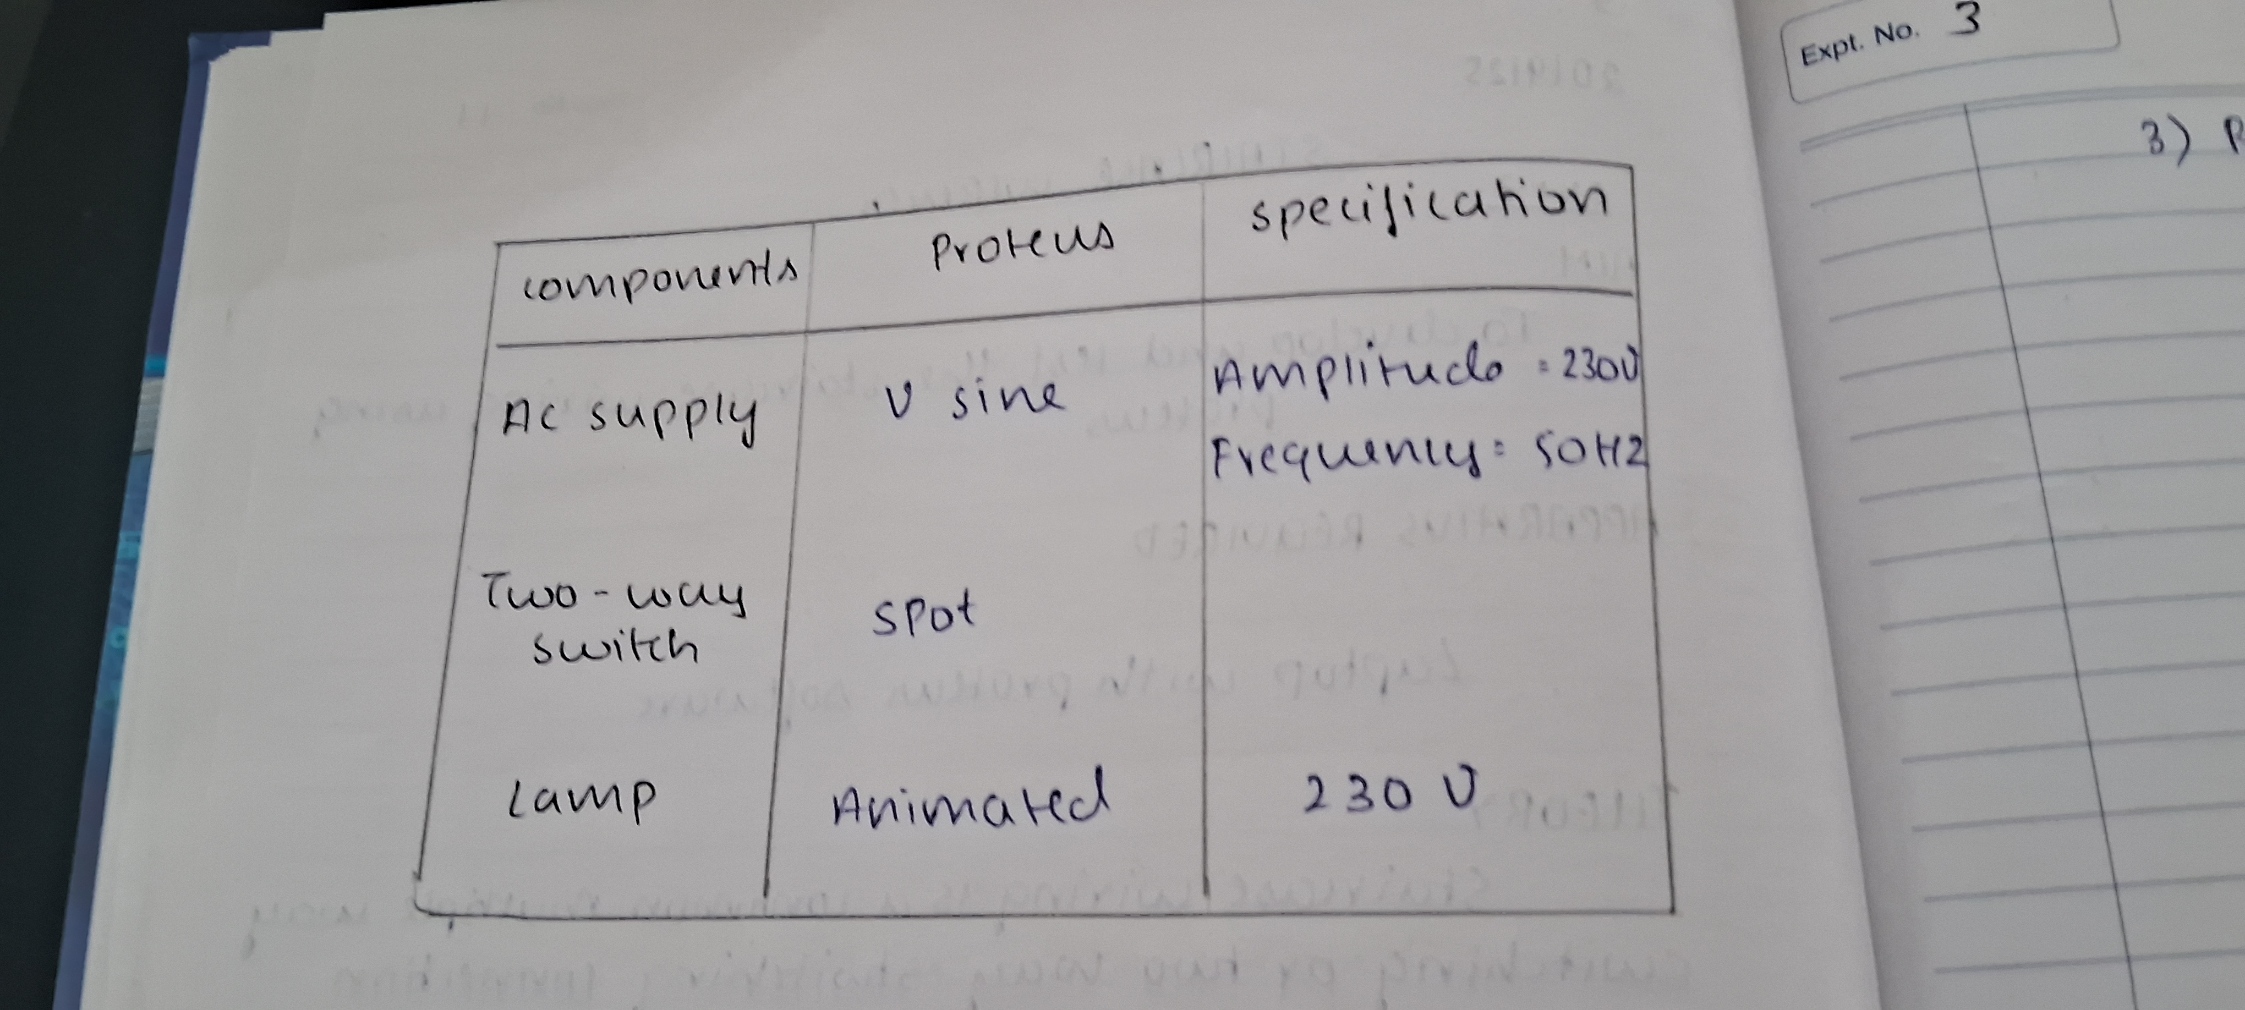 components Proteus specification
Ac supply v sine Amplitude = 230V
Frequency = 50Hz
Two-way spot
switch
Lamp Animated 230 V
Expt. No. 3
3)